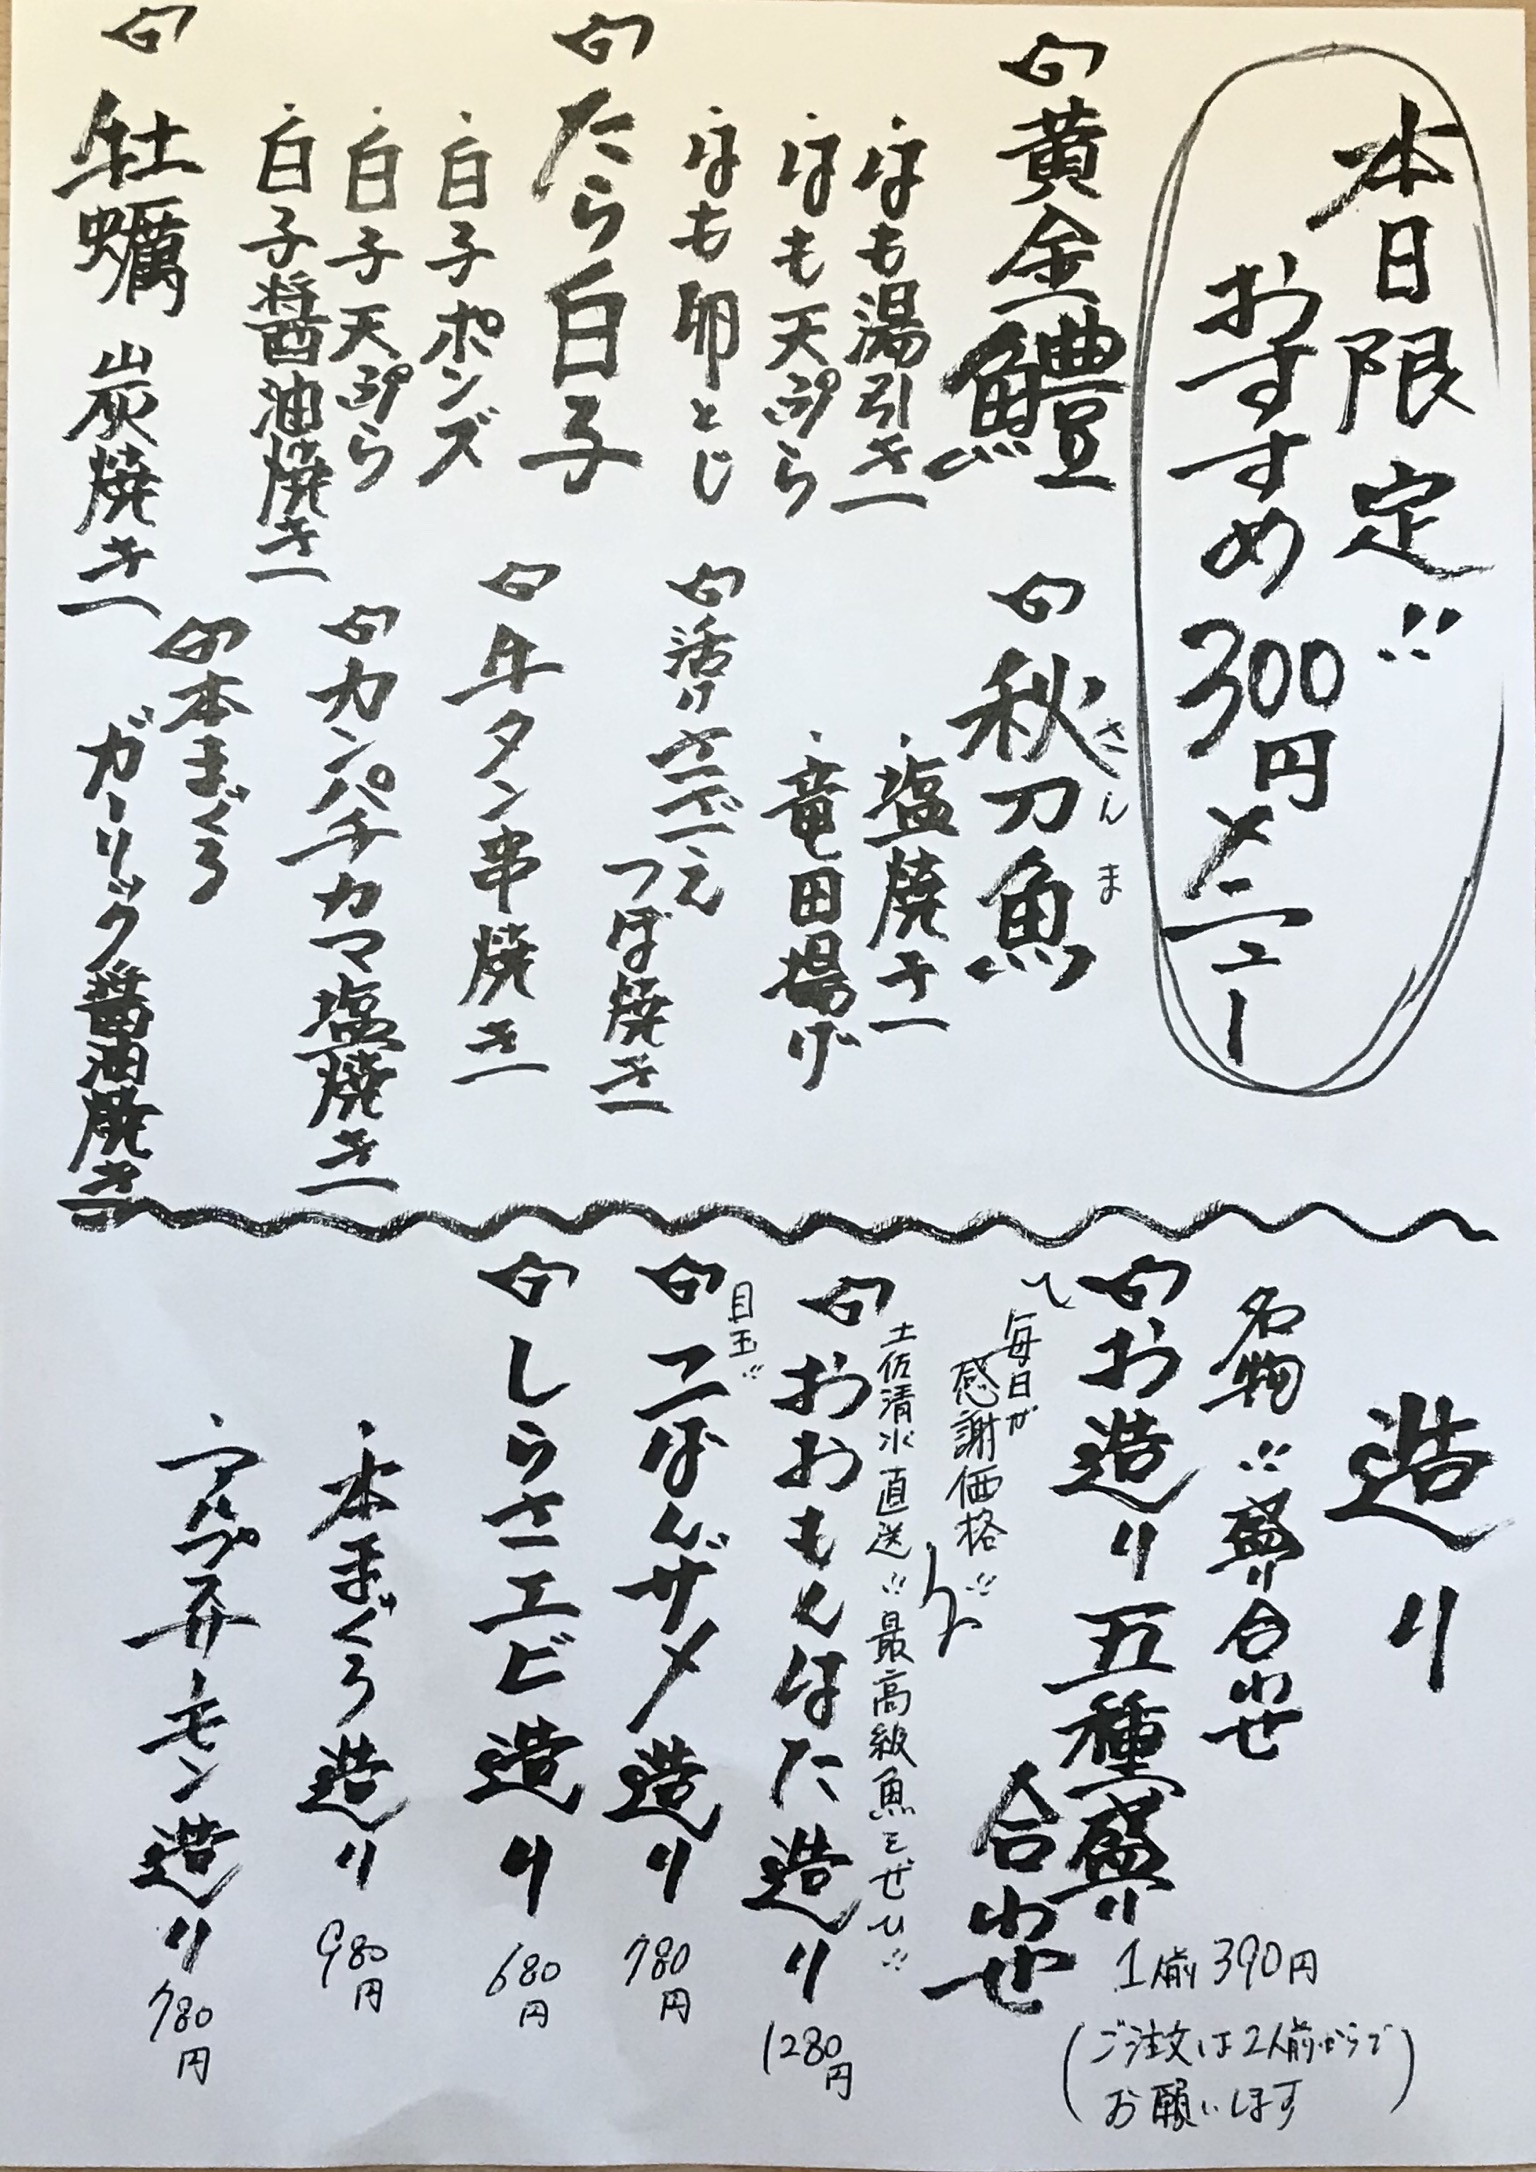 本日限定!!
おすすめ300円メニュー
黄金鱧
・はも湯引き
・はも天ぷら
・はも卵とじ
たら白子
・白子ポンズ
・白子天ぷら
・白子醤油焼き
牡蠣 炭焼き
秋刀魚
さんま
・塩焼き
・竜田揚げ
活けさざえ
つぼ焼き
牛タン串焼き
カンパチカマ塩焼き
本まぐろ
ガーリック醤油焼き
造り
名物!!盛り合わせ
お造り五種盛り
合わせ
1人前390円
(ご注文は2人前からで
お願いします)
毎日が
感謝価格!!
土佐清水直送!!最高級魚をぜひ!!
おおもんはた造り 1280円
目玉!!
こばんザメ造り 780円
しらさエビ造り 680円
・本まぐろ造り 980円
・アルプスサーモン造り 780円